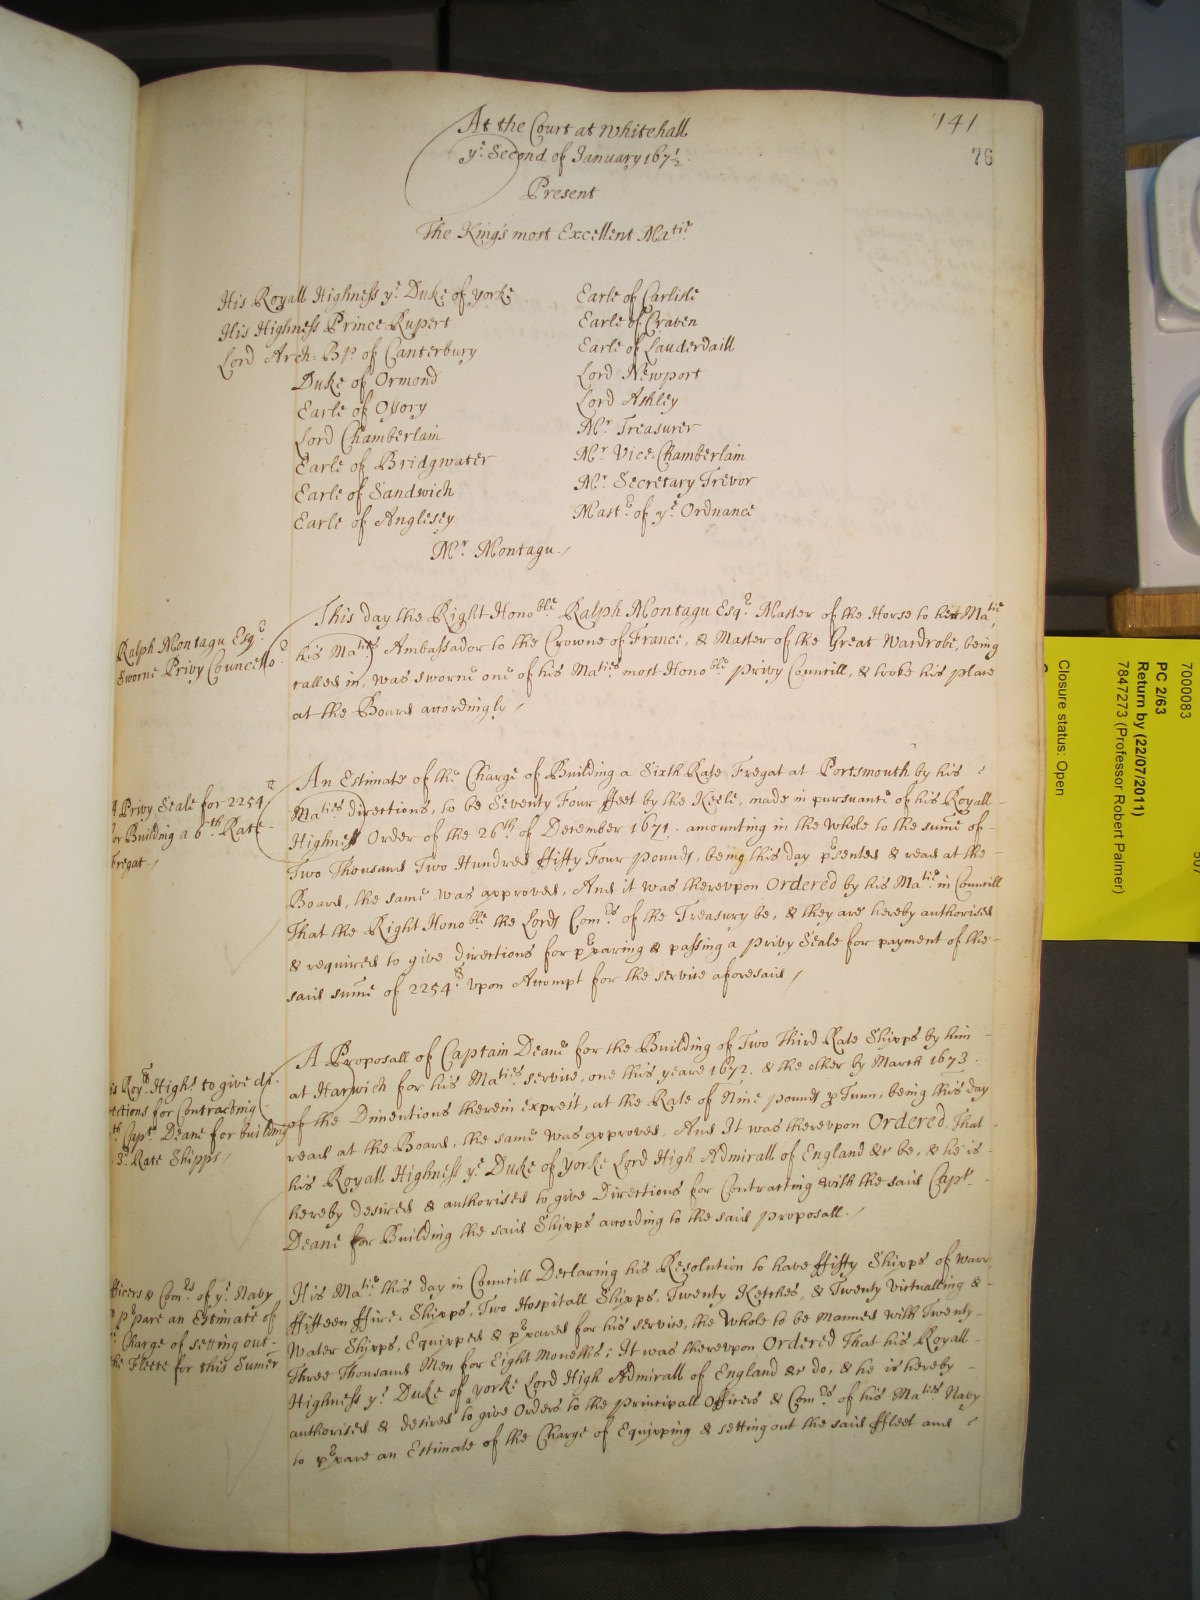 141
76
At the Court at Whitehall
ye Second of January 167½
Present
The Kings most Excellent Matie
His Royall Highness ye Duke of Yorke
His Highness Prince Rupert
Lord Arch: Bp. of Canterbury
Duke of Ormond
Earle of Ossory
Lord Chamberlain
Earle of Bridgwater
Earle of Sandwich
Earle of Anglesey
Earle of Carlisle
Earle of Craven
Earle of Lauderdaill
Lord Newport
Lord Ashley
Mr Treasurer
Mr Vice-Chamberlain
Mr Secretary Trevor
Mastr of ye Ordnance
Mr Montagu./
Ralph Montagu Esqr
Sworne Privy Councellor
This day the Right Honoble Ralph Montagu Esqr Master of the Horse to her Matie,
his Maties Ambassador to the Crowne of France, & Master of the Great Wardrobe, being
called in, was sworne one of his Maties most Honoble privy Councill, & tooke his place
at the Board accordingly /
A Privy Seale for 2254li
for Building a 6th Rate
Fregat./
An Estimate of the Charge of Building a Sixth Rate Fregat at Portsmouth by his
Maties directions, to be Seventy Four ffeet by the Keele, made in pursuance of his Royall
Highness Order of the 26th of December 1671. amounting in the whole to the sume of
Two Thousand Two Hundred ffifty Four pounds, being this day presented & read at the
Board, the same was approved, And it was thereupon Ordered by his Matie in Councill
That the Right Honoble the Lords Comrs of the Treasury be, & they are hereby authorised
& required to give directions for preparing & passing a privy Seale for payment of the
said sume of 2254li upon Accompt for the service aforesaid /
is Royll Highs to give di-
rections for Contracting
th Capt Deane for building
3d Rate Shipps /
A Proposall of Captain Deane for the Building of Two Third Rate Shipps by him
at Harwich for his Maties service, one this yeare 1672. & the other by March 1673.
of the Dimentions therein exprest, at the Rate of Nine pounds p Tunn, being this day
read at the Board, the same was approved, And It was thereupon Ordered, That
his Royall Highness ye Duke of Yorke Lord High Admirall of England &c be, & he is
hereby desired & authorised to give Directions for Contracting with the said Capt.
Deane for Building the said Shipps according to the said proposall./
fficers & Comrs of ye Navy
prepare an Estimate of
Charge of setting out
he Fleete for this Sumer
His Matie this day in Councill Declaring his Resolution to have ffifty Shipps of warr,
ffifteen ffire-Shipps, Two Hospitall Shipps, Twenty Ketches, & Twenty virtualling &
Water Shipps, Equipped & prepared for his service, the whole to be Manned with Twenty
Three Thousand Men for Eight Moneths; It was thereupon Ordered That his Royall
Highness ye Duke of Yorke Lord High Admirall of England &c do, & he is hereby
authorised & desired to give Orders to the principall Officers & Comrs of his Maties Navy
to prepare an Estimate of the Charge of Equipping & setting out the said ffleet and
7000083
PC 2/63
Return by (22/07/2011)
7847273 (Professor Robert Palmer)
Closure status: Open